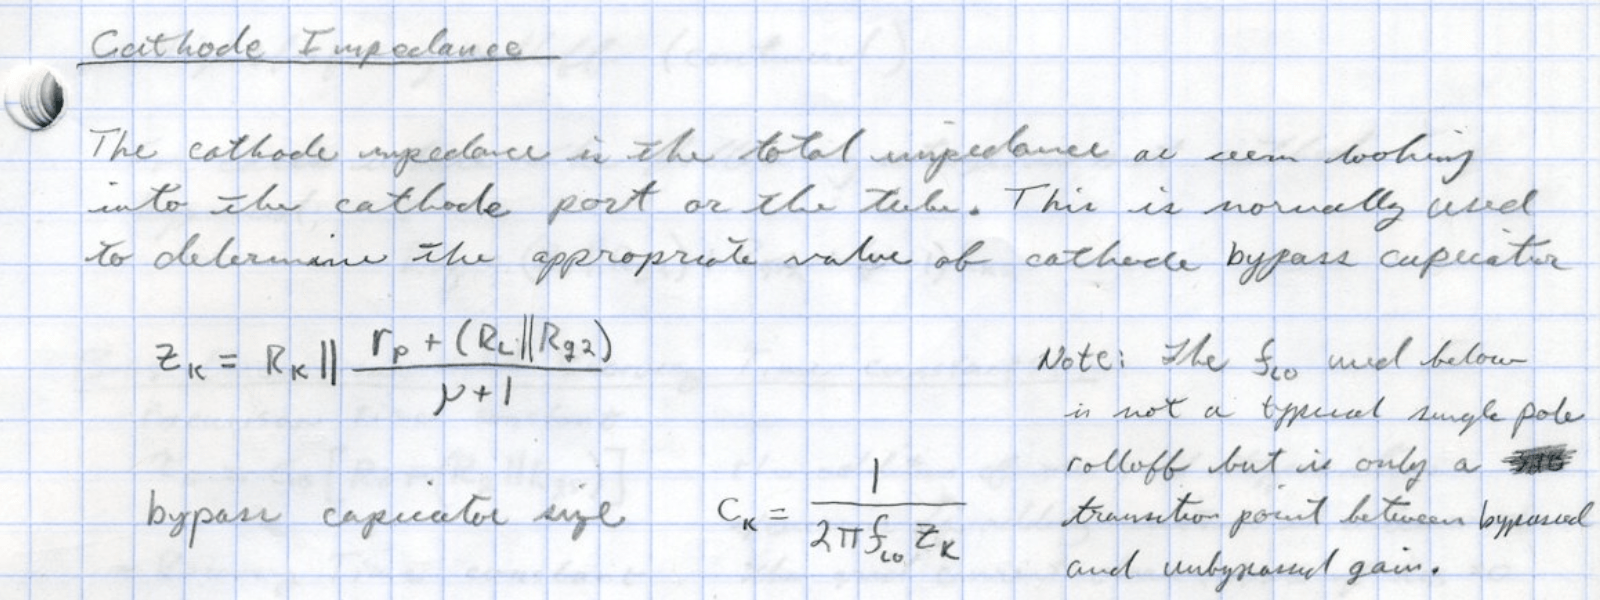 Cathode Impedance
The cathode impedance is the total impedance as seen looking
into the cathode port or the tube. This is normally used
to determine the appropriate value of cathode bypass capicator
Z_K = R_K || (r_p + (R_L || R_g2)) / (μ + 1)
Note: The f_LO used below
is not a typical single pole
rolloff but is only a
transition point between bypassed
and unbypassed gain.
bypass capicator size C_K = 1 / (2π f_LO Z_K)